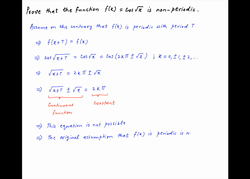 Prove that the function f(x) = cos√x is non-periodic.
Assume on the contrary that f(x) is periodic with period T.
⇒ f(x+T) = f(x)
⇒ cos√x+T = cos√x = cos(2kπ ± √x) ; k = 0, ±1, ±2, ...
⇒ √x+T = 2kπ ± √x
⇒ √x+T ± √x = 2kπ
Continuous function
Constant
⇒ This equation is not possible
⇒ The original assumption that f(x) is periodic is